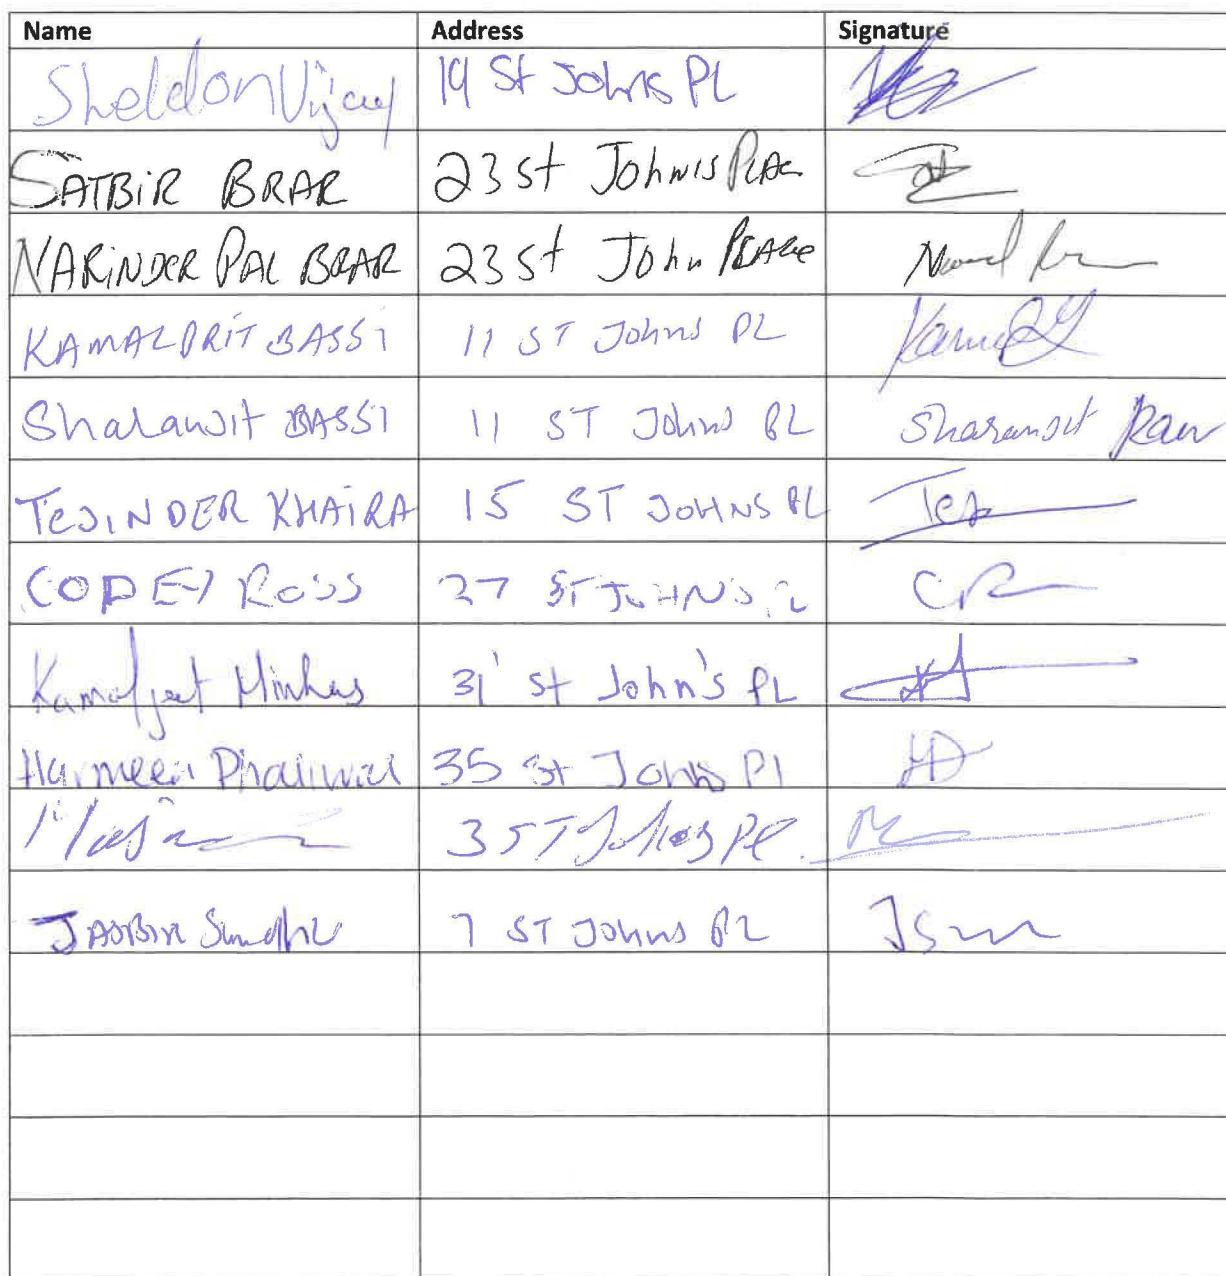 Name Address Signature
Sheldon Vijay 19 St Johns PL
SATBIR BRAR 23 St John's PLAC
NARINDER PAL BRAR 23 St John PLACE
KAMALPRIT BASSI 11 ST Johns PL
Sharanjit BASSI 11 ST Johns PL Sharanjit Kaur
TEJINDER KHAIRA 15 ST JOHNS PL Tej
CODEY ROSS 27 ST JOHNS PL
Kamaljeet Minhas 31 St John's PL
Harmeen Dhaliwal 35 St Johns Pl HD
3 ST Johns Pl.
JASBIR Sundhu 7 ST Johns PL